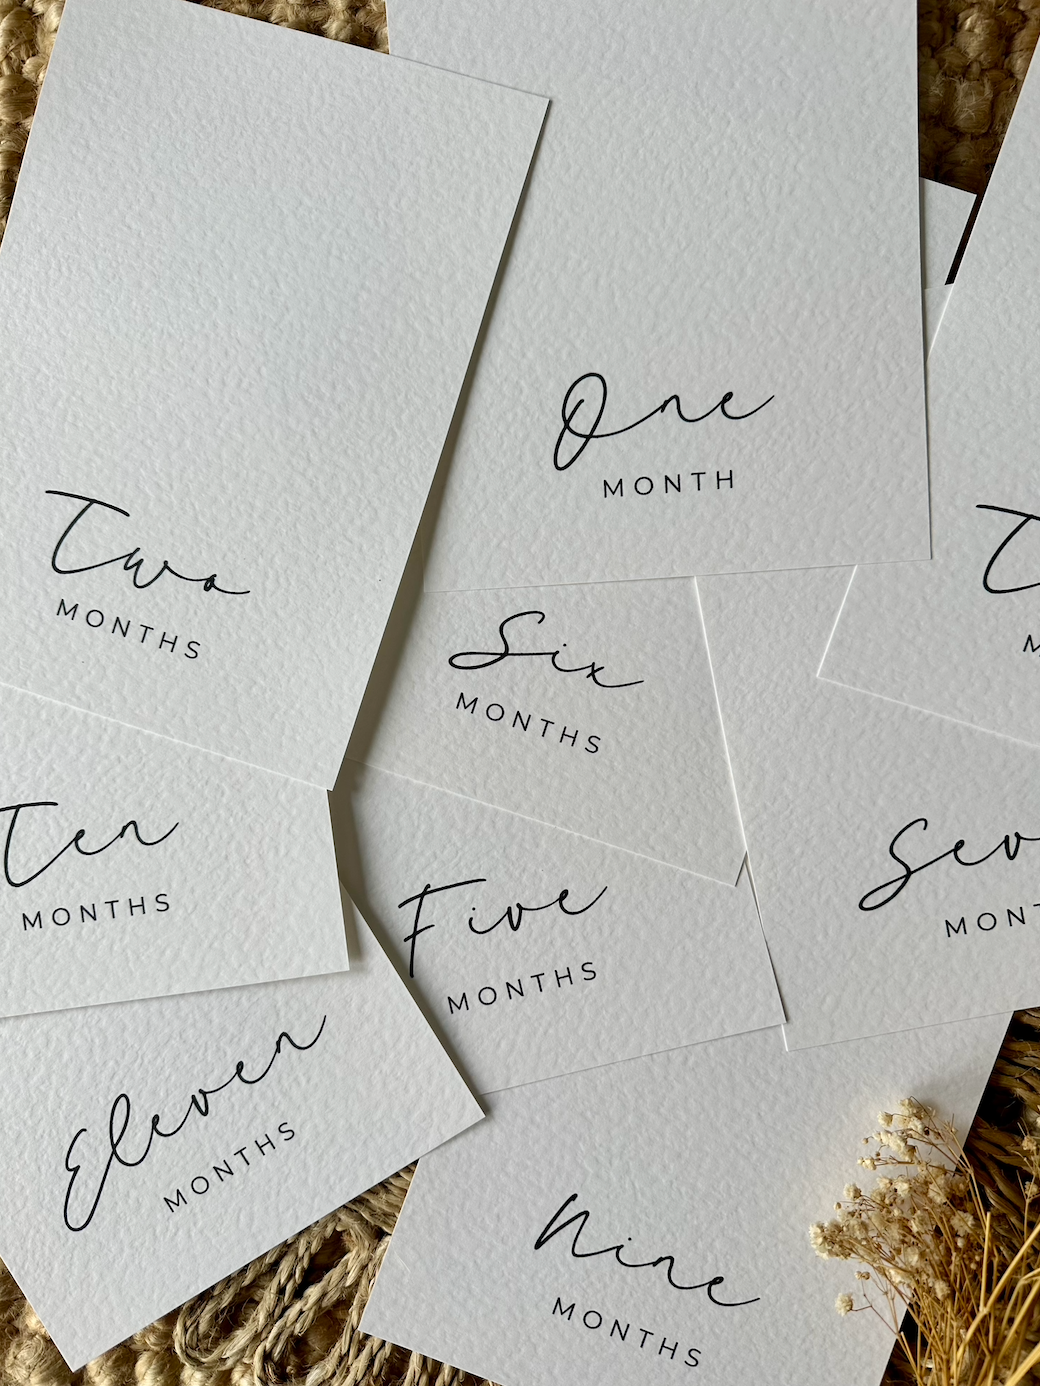 One
MONTH
Two
MONTHS
Six
MONTHS
Ten
MONTHS
Five
MONTHS
Eleven
MONTHS
Nine
MONTHS